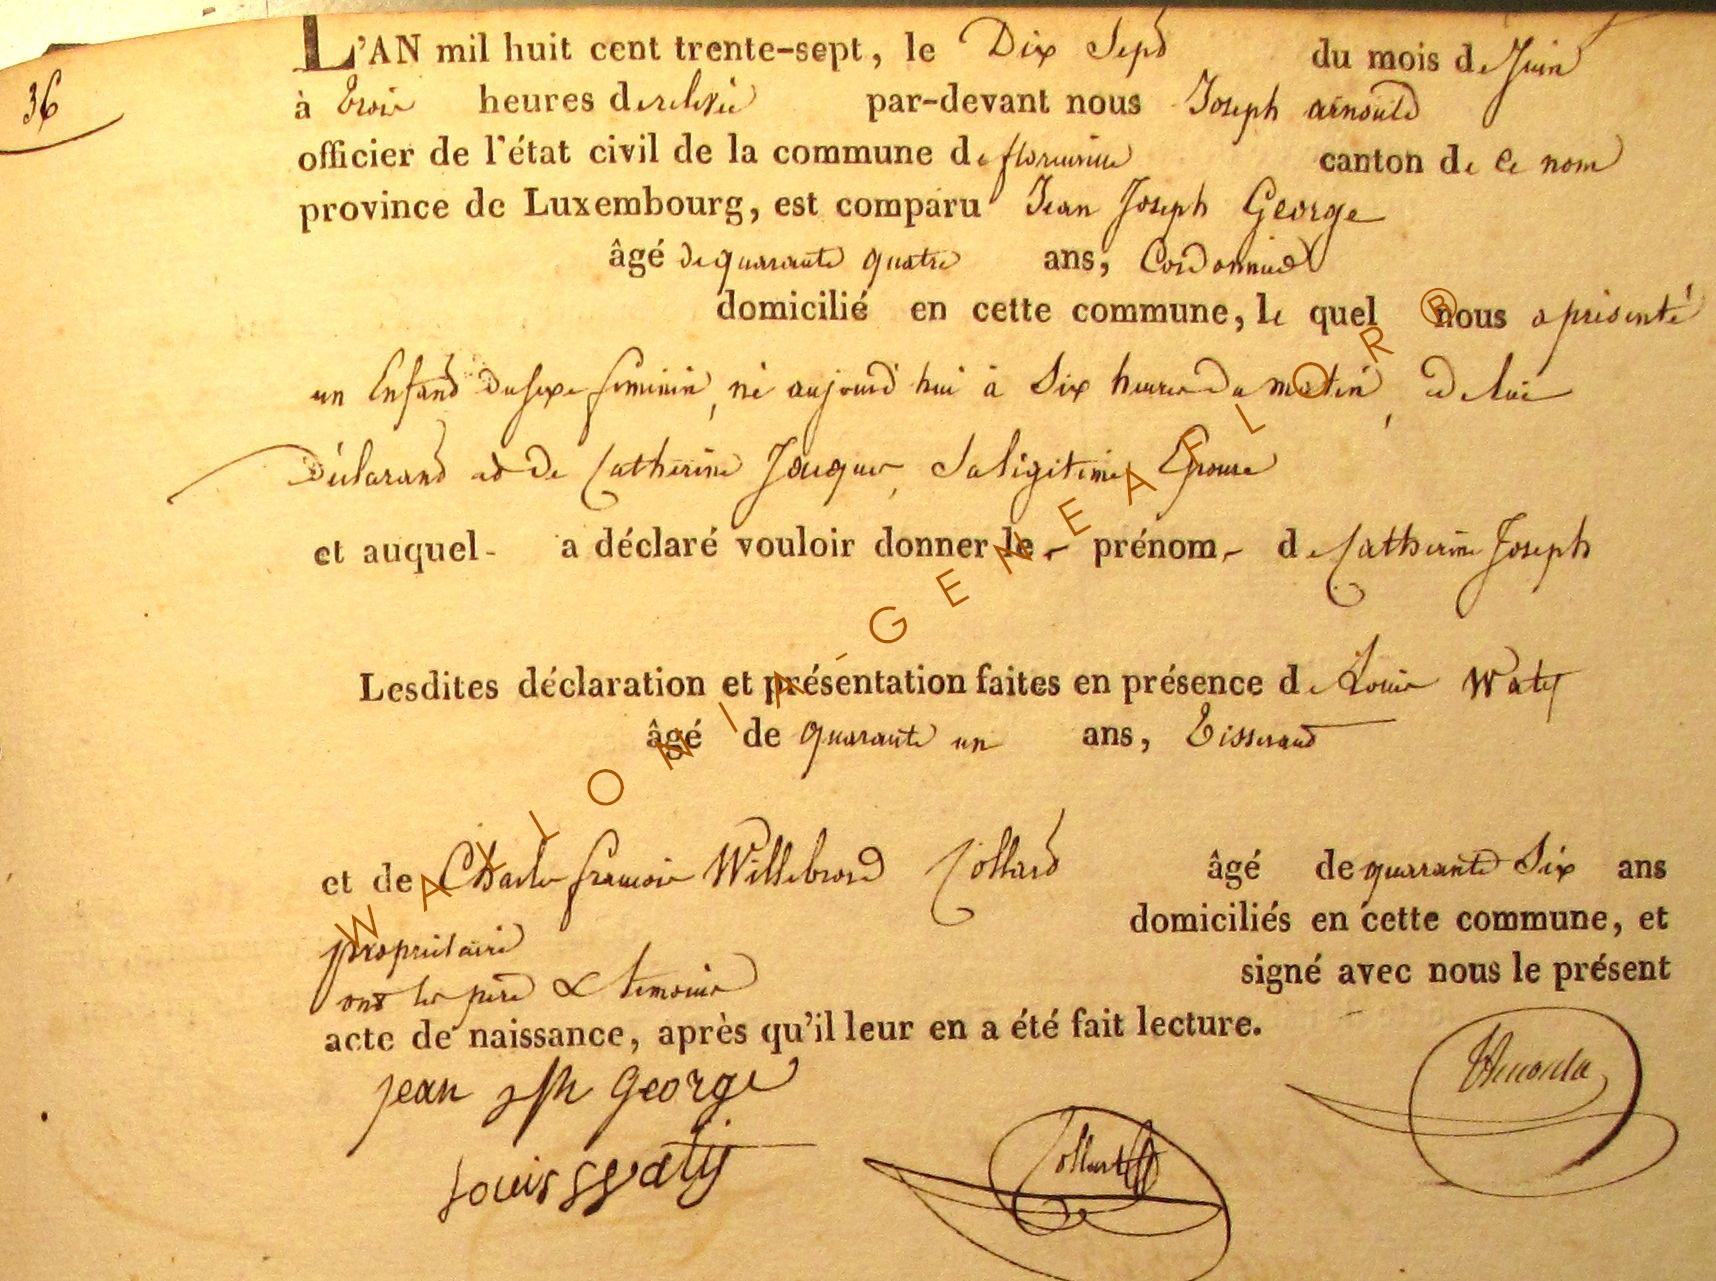 36
L'AN mil huit cent trente-sept, le Dix Sept du mois de Juin
à trois heures de relevée par-devant nous Joseph arnould
officier de l'état civil de la commune de florenville canton de ce nom
province de Luxembourg, est comparu Jean Joseph George
âgé de quarante quatre ans, Cordonnier
domicilié en cette commune, le quel nous a présenté
un Enfant du sexe féminin, né aujourd'hui à Six heures du matin, de lui
Déclarant et de Catherine Jacques, Sa légitime Epouse
et auquel a déclaré vouloir donner le prénom de Catherine Joseph
Lesdites déclaration et présentation faites en présence de Louis Waty
âgé de quarante un ans, Tisserand
et de Charles françois Willebrord Collard âgé de quarante Six ans
propriétaire domiciliés en cette commune, et
ont les père & témoins signé avec nous le présent
acte de naissance, après qu'il leur en a été fait lecture.
jean jph George
Louis Watij
Collard
Arnould
WALLONIA-GENEAFLOR ®